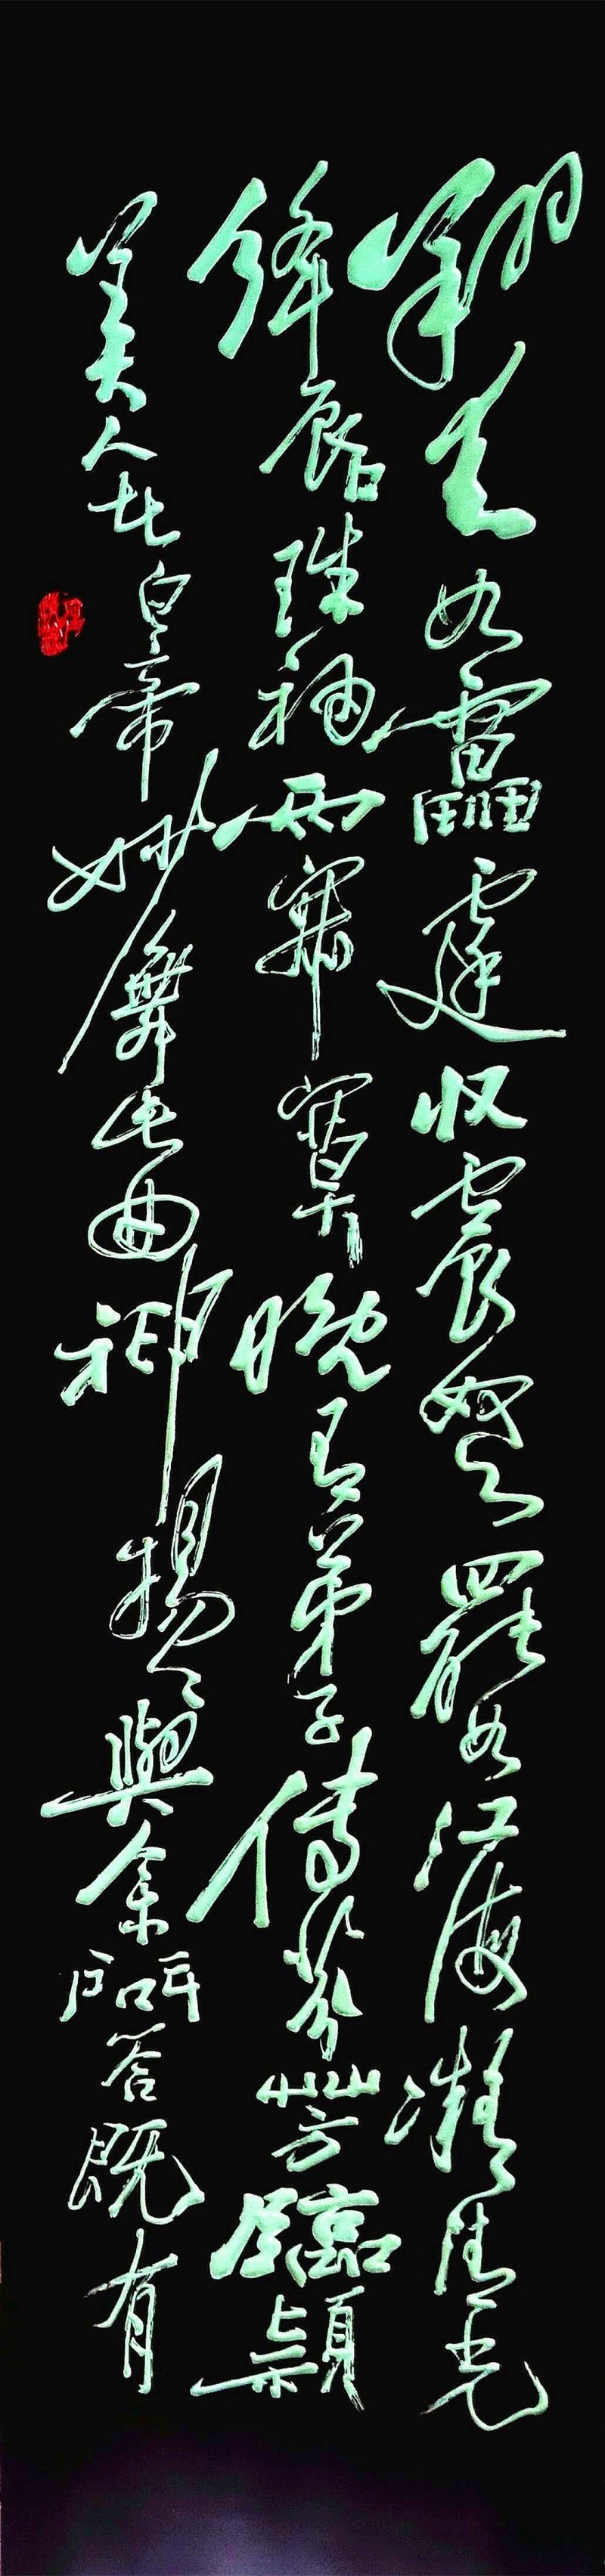 翔来如雷霆收震怒罷如江海凝清光
絳唇珠袖兩寂寞晚有弟子傳芬芳臨潁
美人在白帝妙舞此曲神揚揚與余問答既有